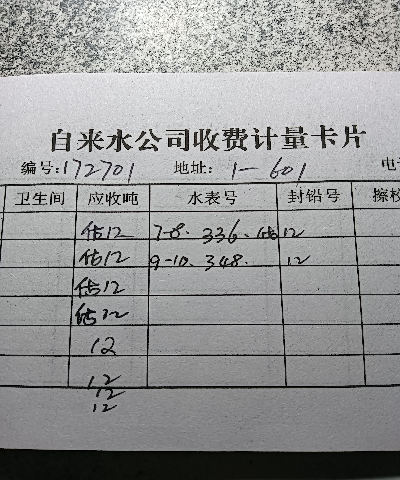 自来水公司收费计量卡片
编号:172701 地址: 1-601 电
卫生间 应收吨 水表号 封铅号 擦校
估12 7-8. 336. 估12
估12 9-10. 348. 12
估12
估12
12
12
12
12